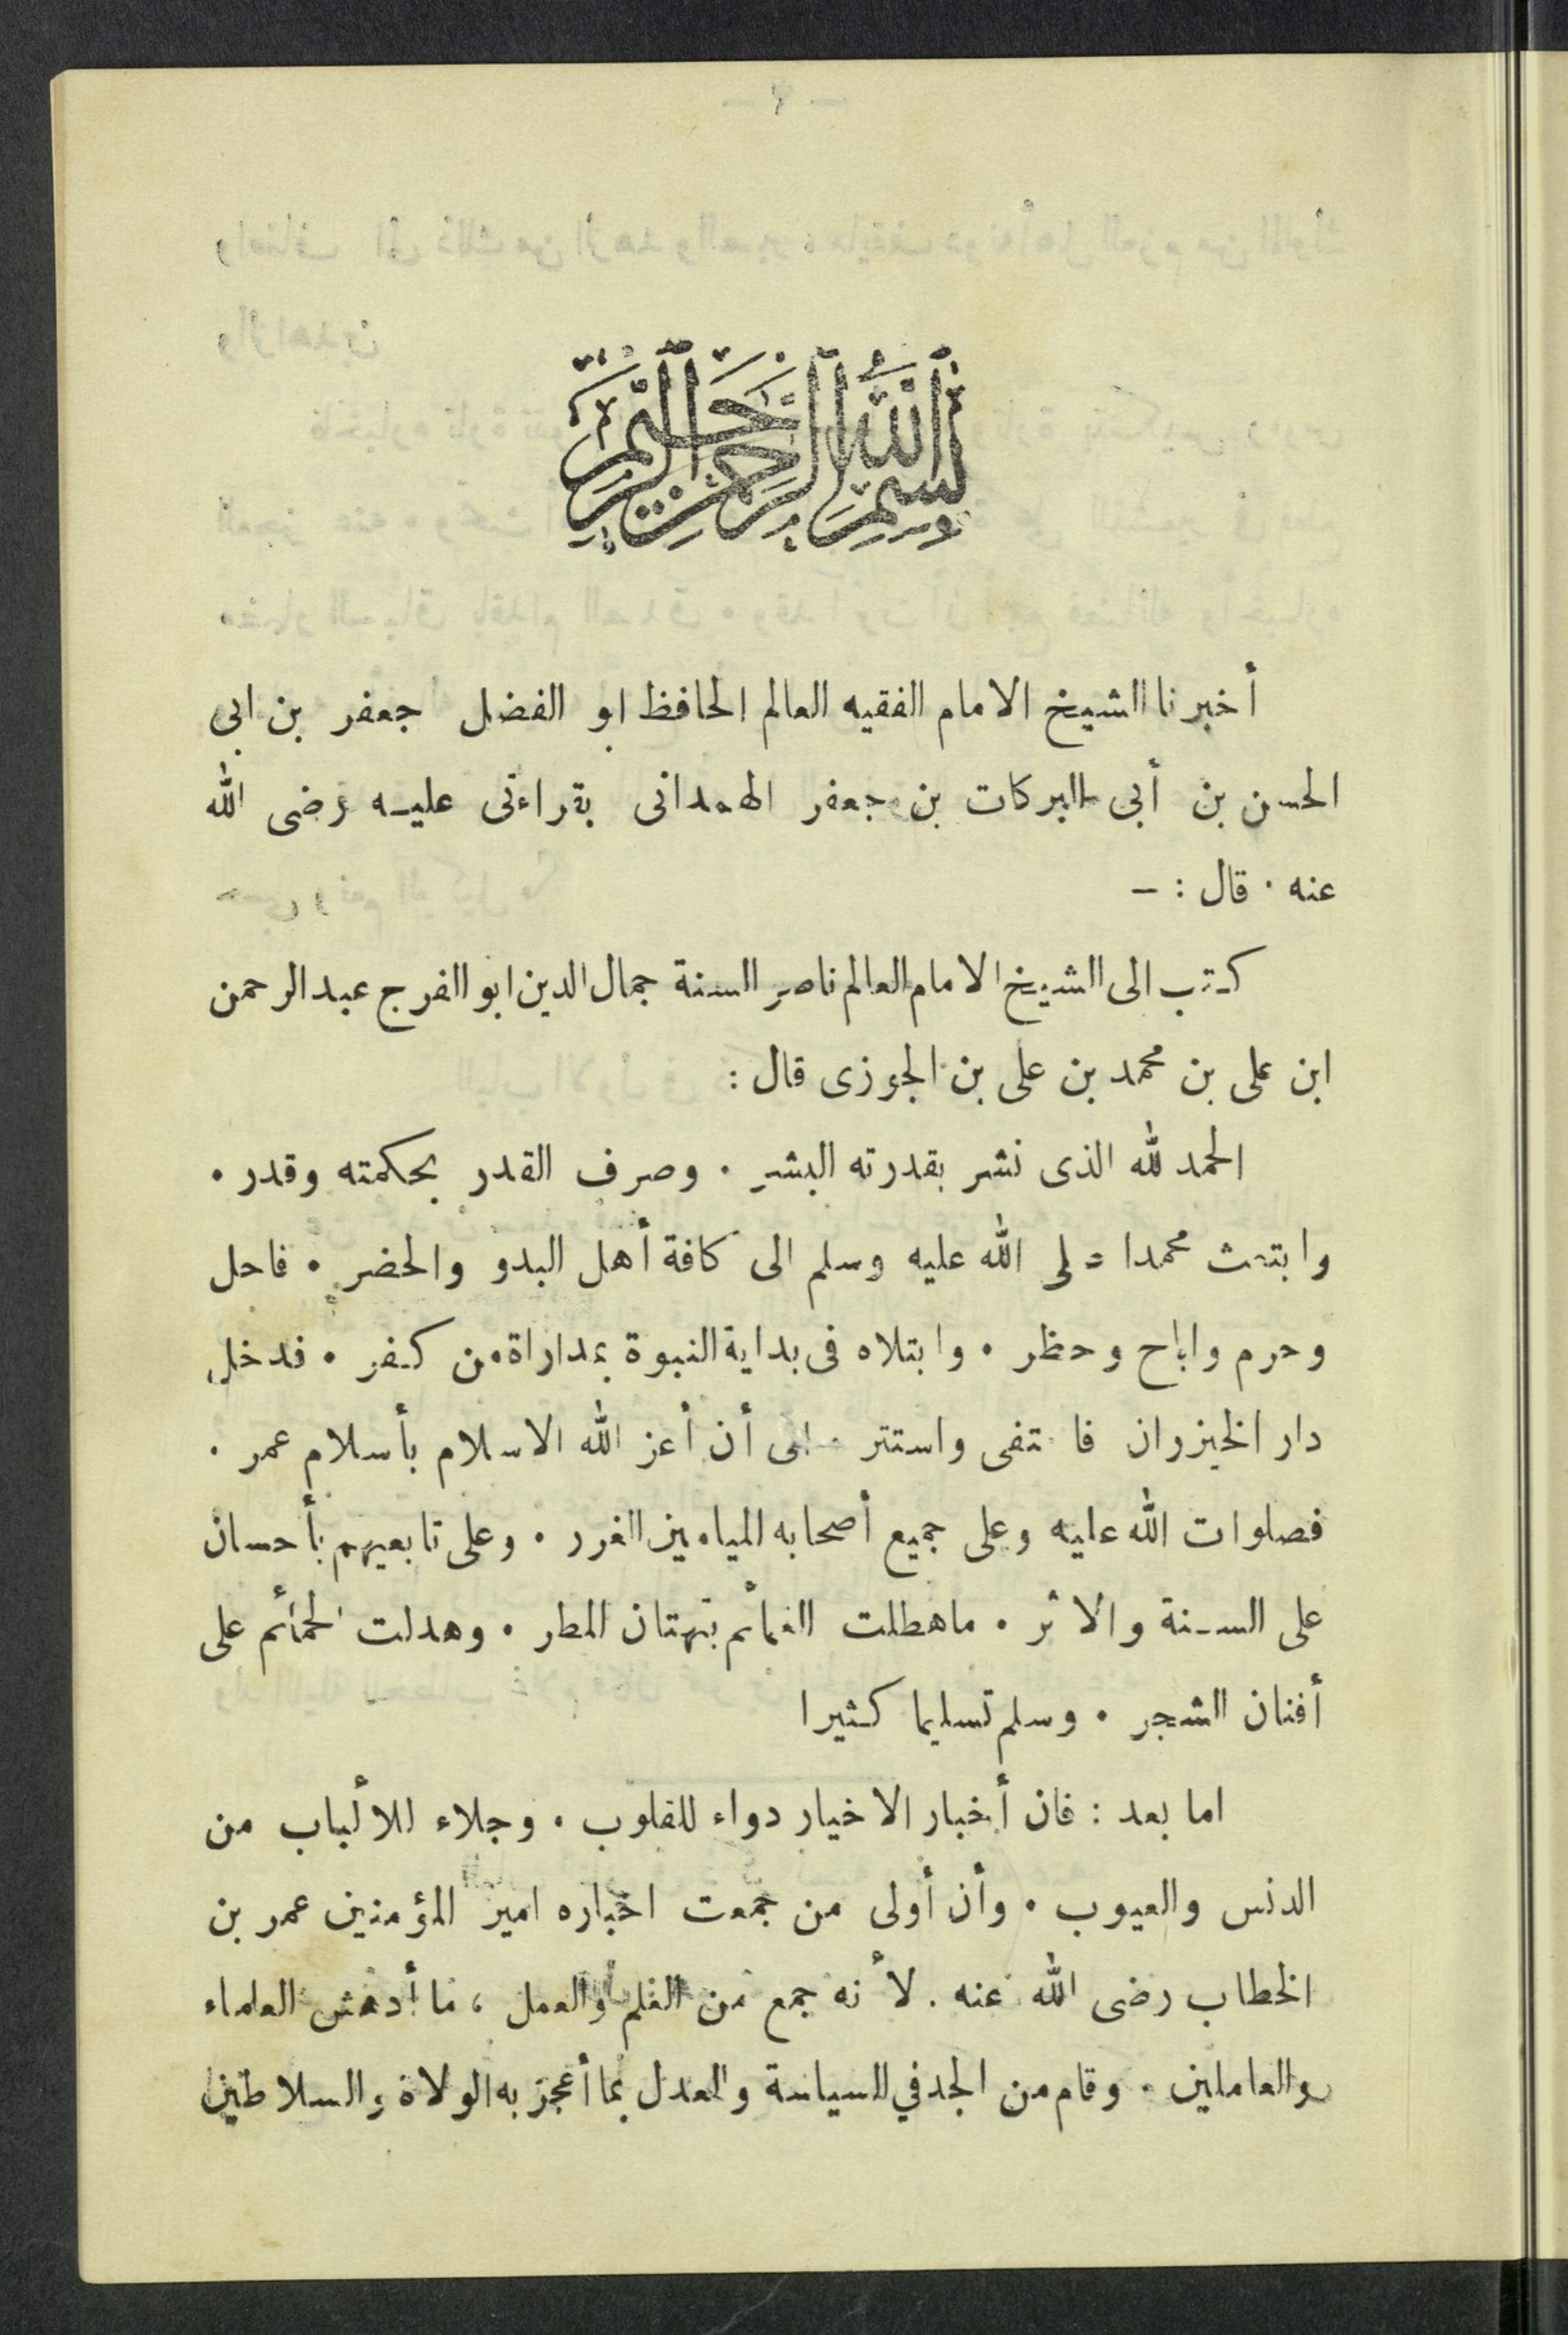 بسم الله الرحمن الرحيم
أخبرنا الشيخ الامام الفقيه العالم الحافظ ابو الفضل جعفر بن ابى
الحسن بن أبى البركات بن جعفر الهمدانى بقراءتى عليه رضى الله
عنه . قال : –
كتب الى الشيخ الامام العالم ناصر السنة جمال الدين ابو الفرج عبد الرحمن
ابن على بن محمد بن على بن الجوزى قال :
الحمد لله الذى نشر بقدرته البشر . وصرف القدر بحكمته وقدر .
وابتعث محمدا صلى الله عليه وسلم الى كافة أهل البدو والحضر . فاحل
وحرم واباح وحظر . وابتلاه فى بداية النبوة بمداراة من كفر . فدخل
دار الخيزران فاختفى واستتر . الى أن أعز الله الاسلام بأسلام عمر .
فصلوات الله عليه وعلى جميع أصحابه الميامين الغرر . وعلى تابعيهم بأحسان
على السنة والاثر . ماهطلت الغمائم بتهتان المطر . وهدلت الحمائم على
أفنان الشجر . وسلم تسليما كثيرا
اما بعد : فان أخبار الاخيار دواء للقلوب . وجلاء للألباب من
الدنس والعيوب . وأن أولى من جمعت اخباره امير المؤمنين عمر بن
الخطاب رضى الله عنه . لأنه جمع من العلم والعمل ، ما أدهش العلماء
والعاملين . وقام من الجد في السياسة والعدل بما أعجز به الولاة والسلاطين